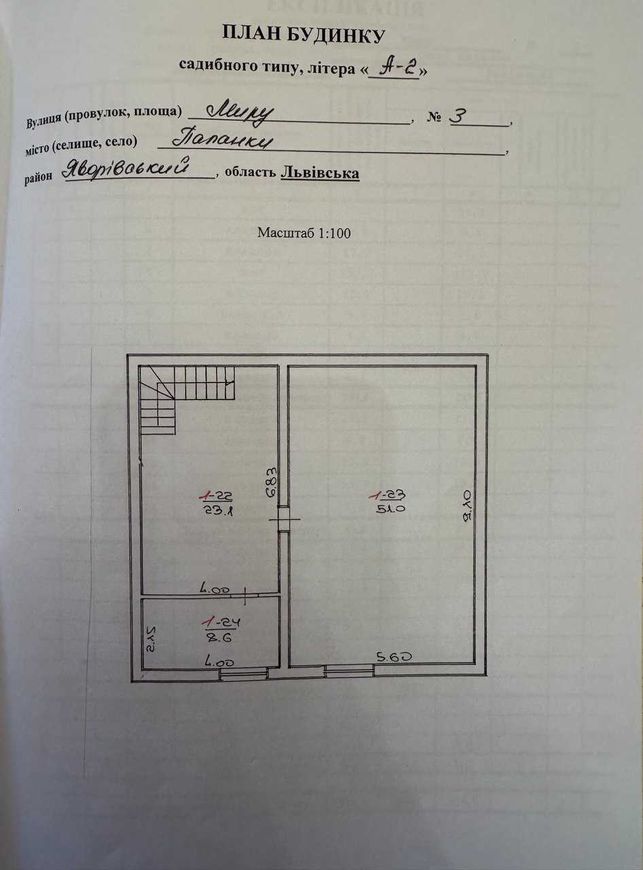 ПЛАН БУДИНКУ
садибного типу, літера « А-2 »
Вулиця (провулок, площа) Миру, № 3,
місто (селище, село) Папанки,
район Яворівський, область Львівська
Масштаб 1:100
1-22
23.1
6.83
1-23
51.0
4.00
1-24
8.6
2.15
4.00
5.60